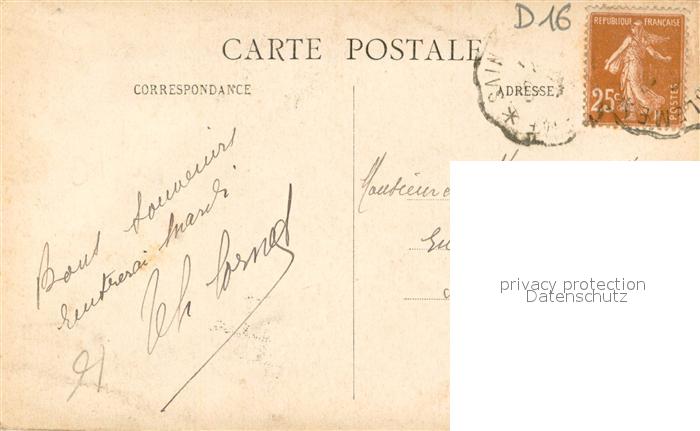 D 16
CARTE POSTALE
RÉPUBLIQUE FRANÇAISE
25c
POSTES
CORRESPONDANCE
ADRESSE
Bons souvenirs
rentrerai mardi
Th Cornet
Monsieur
privacy protection
Datenschutz